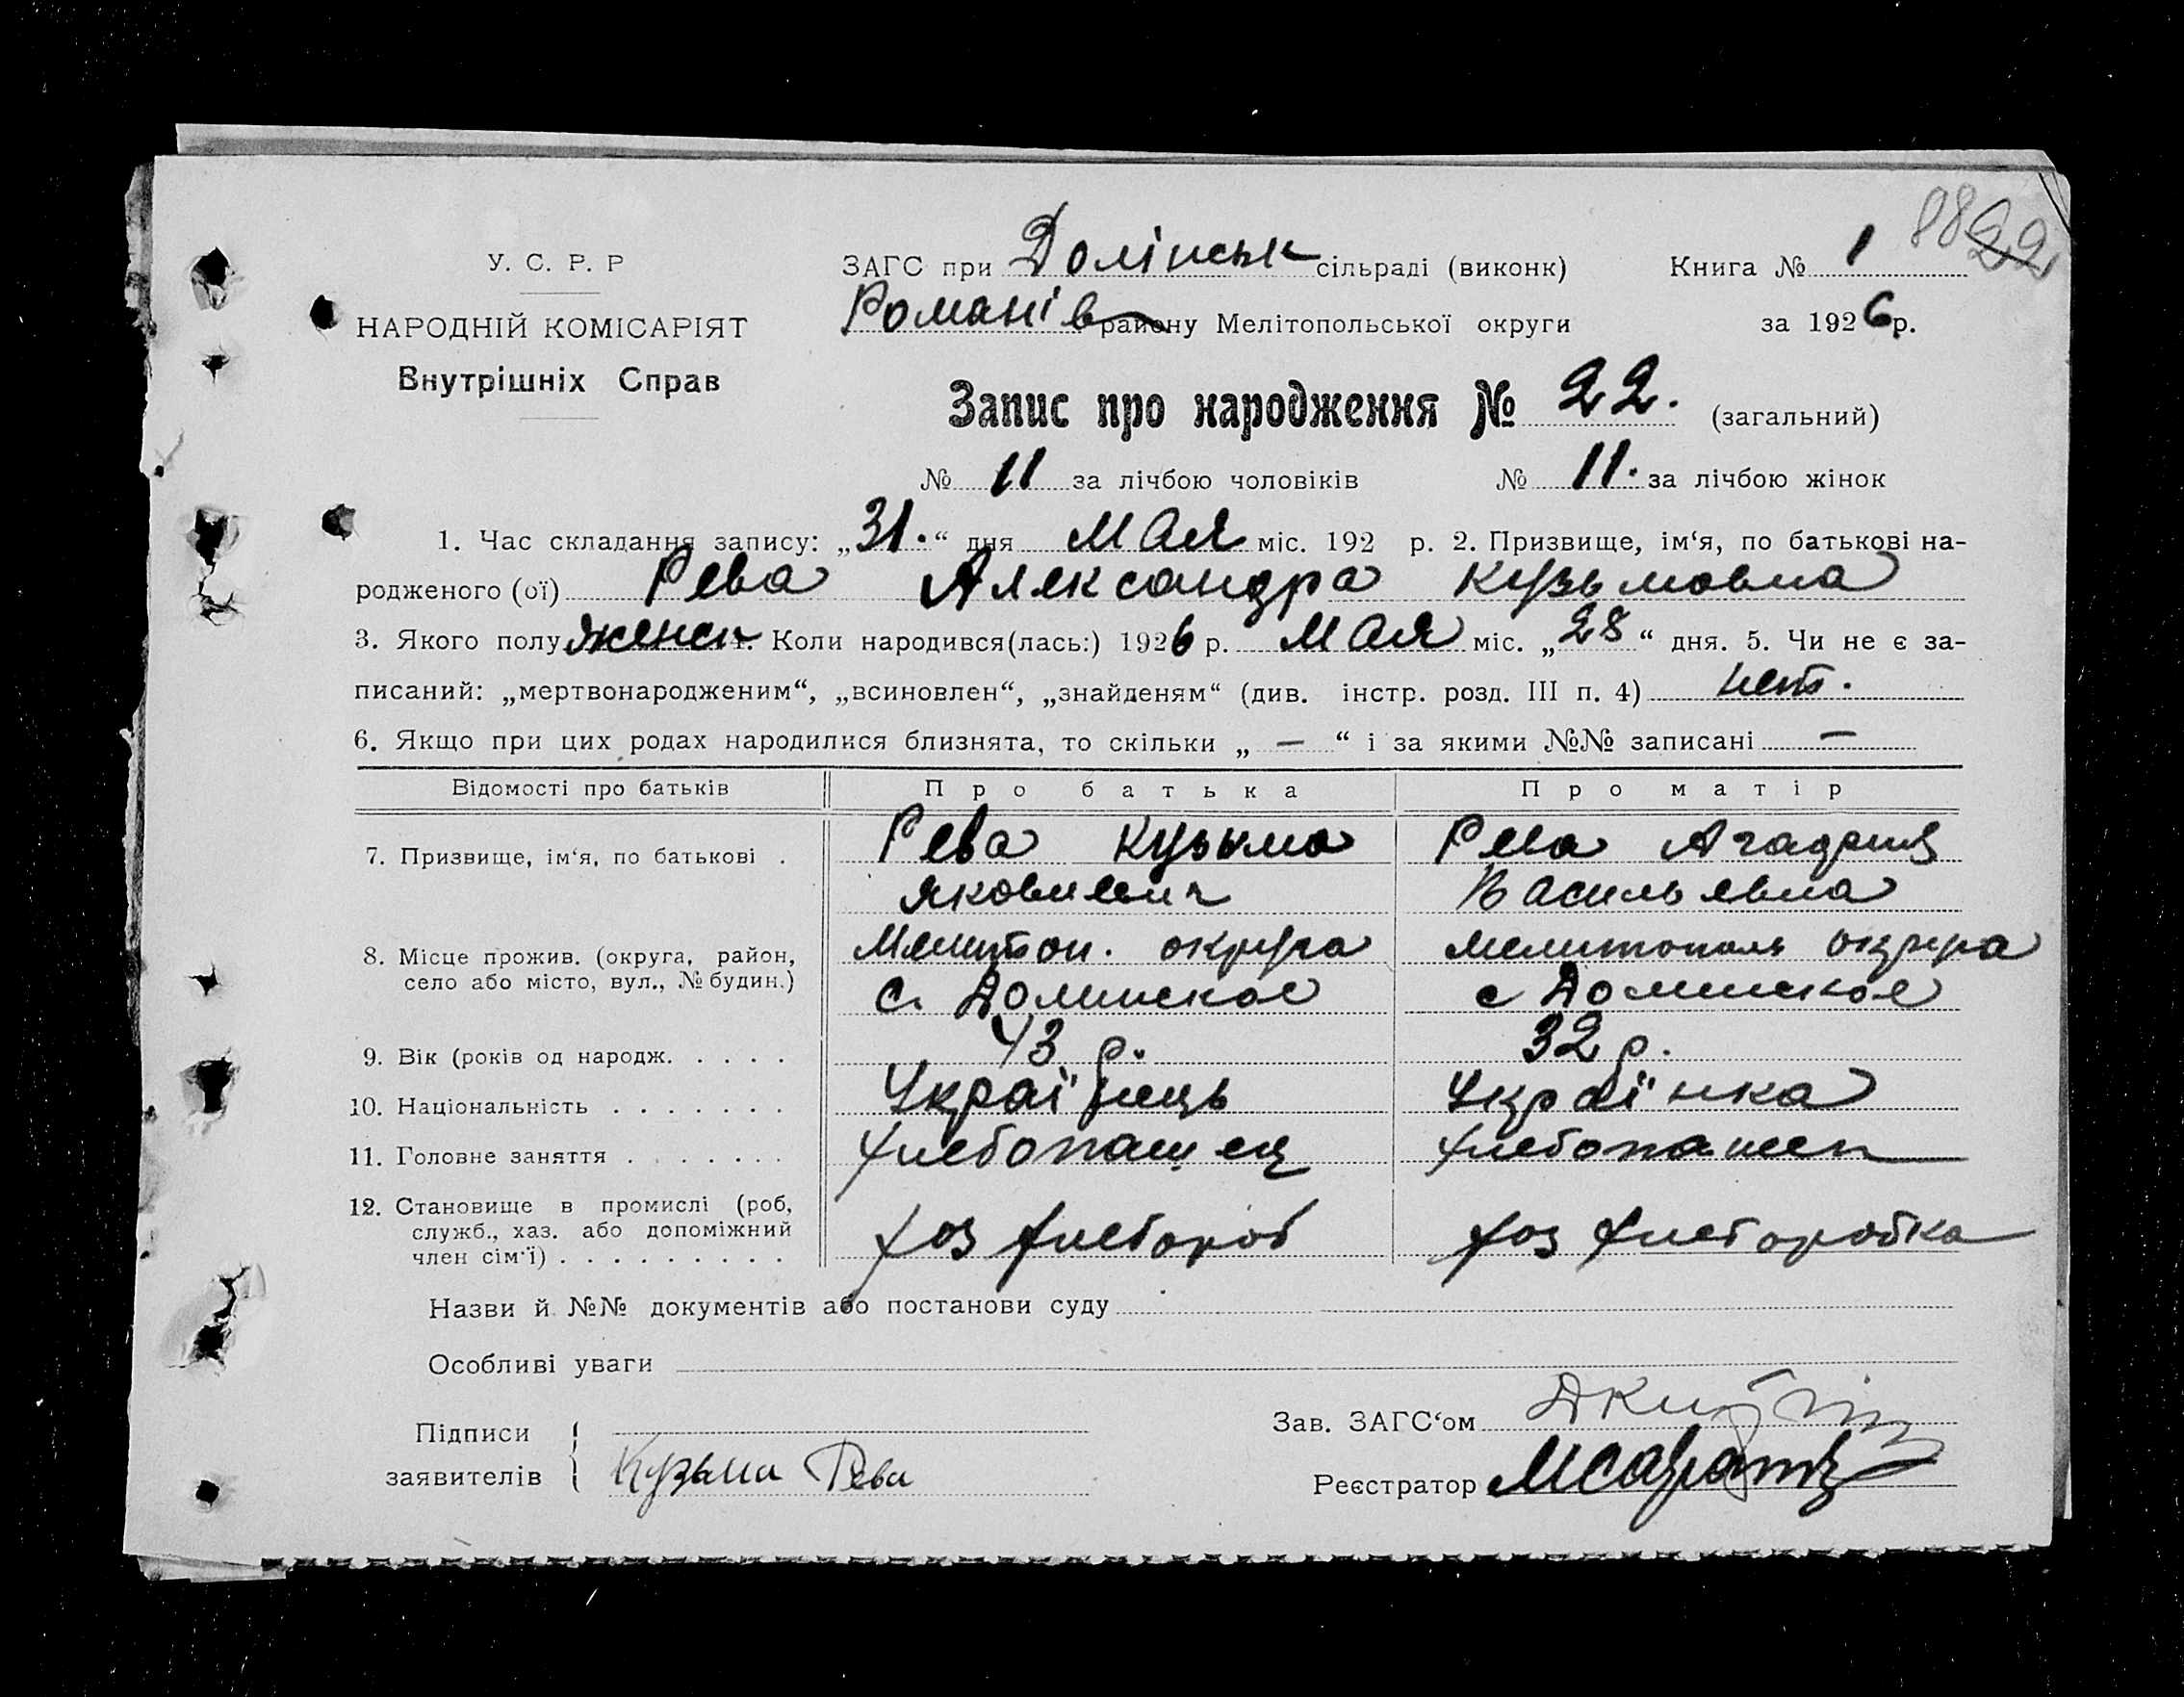 88 22
У. С. Р. Р
НАРОДНІЙ КОМІСАРІЯТ
Внутрішніх Справ
ЗАГС при Долінськ сільраді (виконк) Книга № 1
Романів району Мелітопольської округи за 1926 р.
Запис про народження № 22. (загальний)
№ 11 за лічбою чоловіків № 11. за лічбою жінок
1. Час складання запису: „31.“ дня Мая міс. 192 р. 2. Призвище, ім‘я, по батькові на-
родженого (ої) Рева Александра Кузьмовна
3. Якого полу женск 4. Коли народився(лась:) 1926 р. Мая міс. „28“ дня. 5. Чи не є за-
писаний: „мертвонародженим“, „всиновлен“, „знайденям“ (див. інстр. розд. III п. 4) нет.
6. Якщо при цих родах народилися близнята, то скільки „ — “ і за якими №№ записані —
Відомості про батьків Про батька Про матір
7. Призвище, ім‘я, по батькові . Рева Кузьма Рева
Яковлевич Васильевна
8. Місце прожив. (округа, район, село або місто, вул., № будин.) Мелитоп. округа Мелитополь округа
с. Долинское с Долинское
9. Вік (років од народж. . . . . 43 р. 32 р.
10. Національність . . . . . . . Українець Українка
11. Головне заняття . . . . . . . хлебопашец хлебопашец
12. Становище в промислі (роб,
служб., хаз. або допоміжний
член сім‘ї) . . . . . . . . . хоз хлебороб хоз хлеборобка
Назви й №№ документів або постанови суду
Особливі уваги
Підписи
заявителів Кузьма Рева
Зав. ЗАГС‘ом
Реєстратор